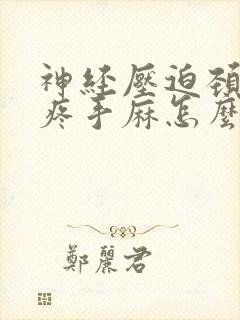 神経壓迫頸
疼手麻怎麼
鄭麗君